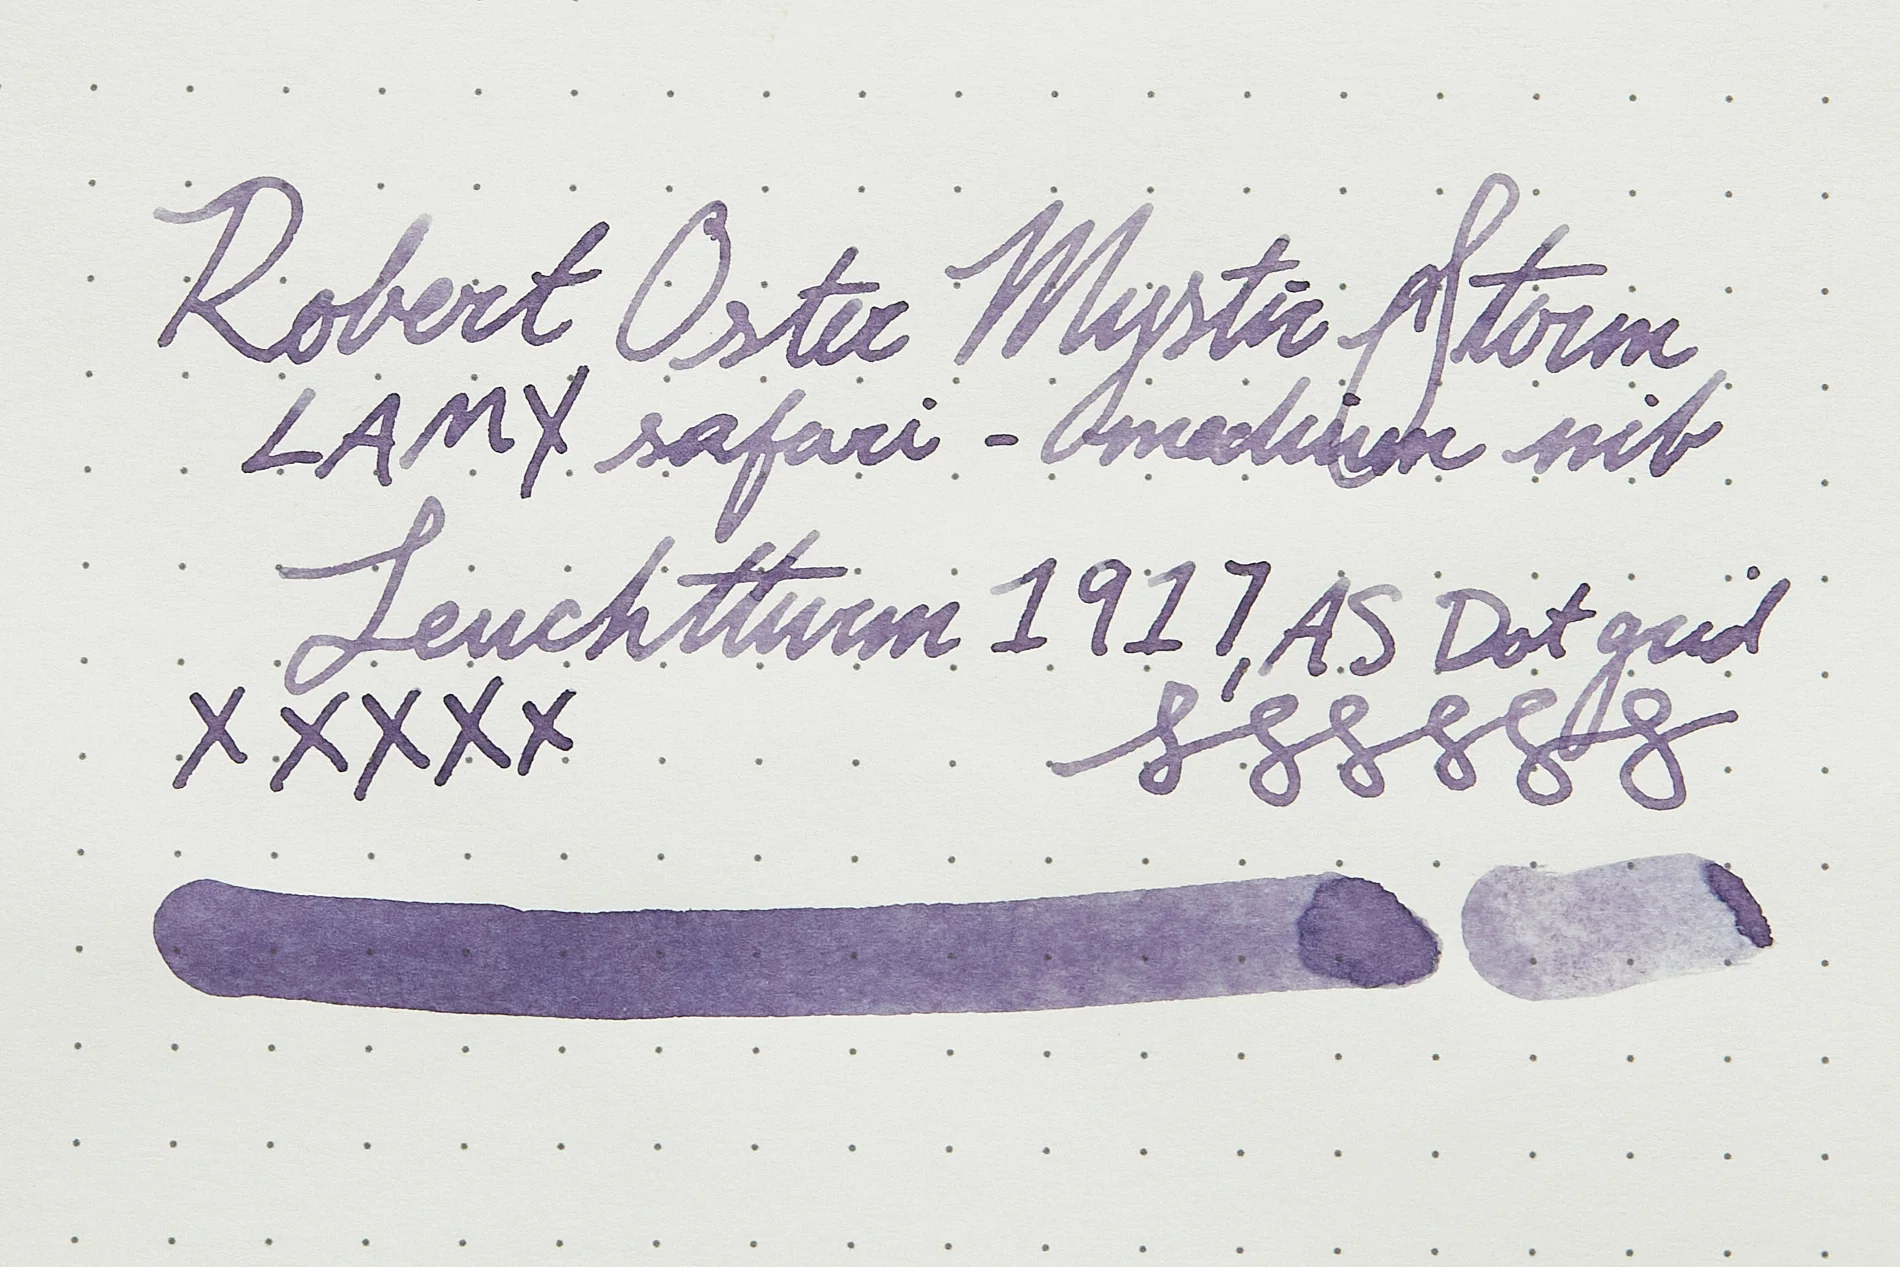 Robert Oster Mystic Storm
LAMY safari - medium nib
Leuchtturm 1917, A5 Dot grid
x x x x x